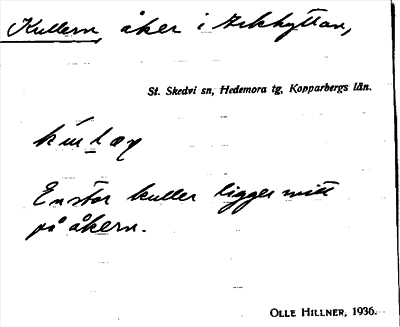 Kullern, åker i Arkhyttan,
St. Skedvi sn, Hedemora tg, Kopparbergs län.
En stor kuller ligger mitt
på åkern.
OLLE HILLNER, 1936.